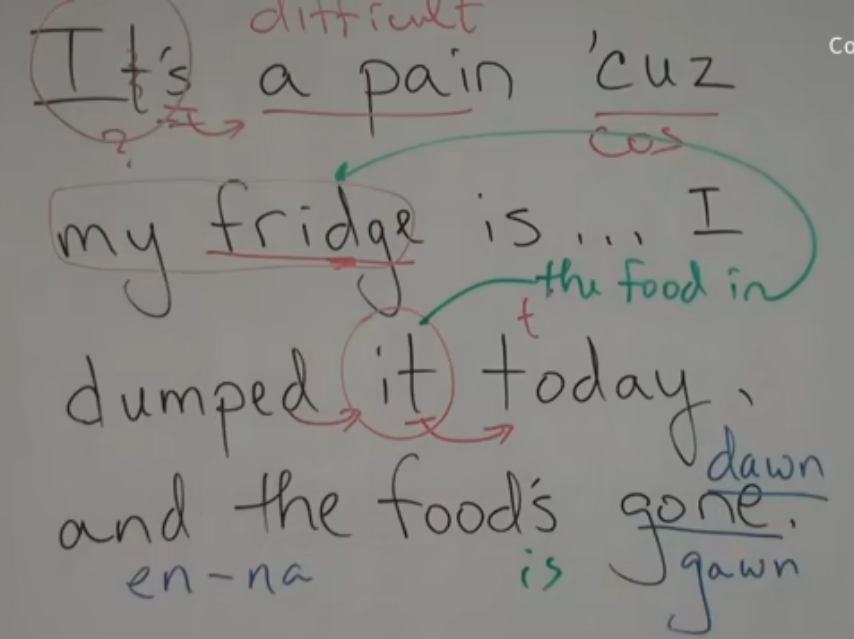 difficult
It's a pain 'cuz
Co
?
cos
my fridge is... I
the food in
t
dumped it today,
dawn
and the food's gone.
en-na is gawn